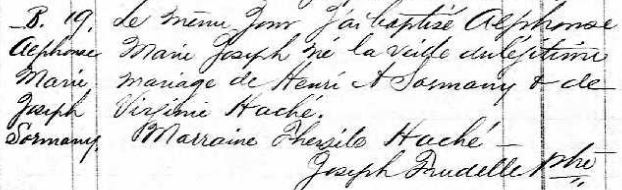 B. 19. Le même Jour J'ai baptisé Alphonse
Alphonse Marie Joseph né la veille du légitime
Marie mariage de Henri A Sormany & de
Joseph Virginie Haché.
Sormany Marraine Thersile Haché —
Joseph Trudelle Ptre